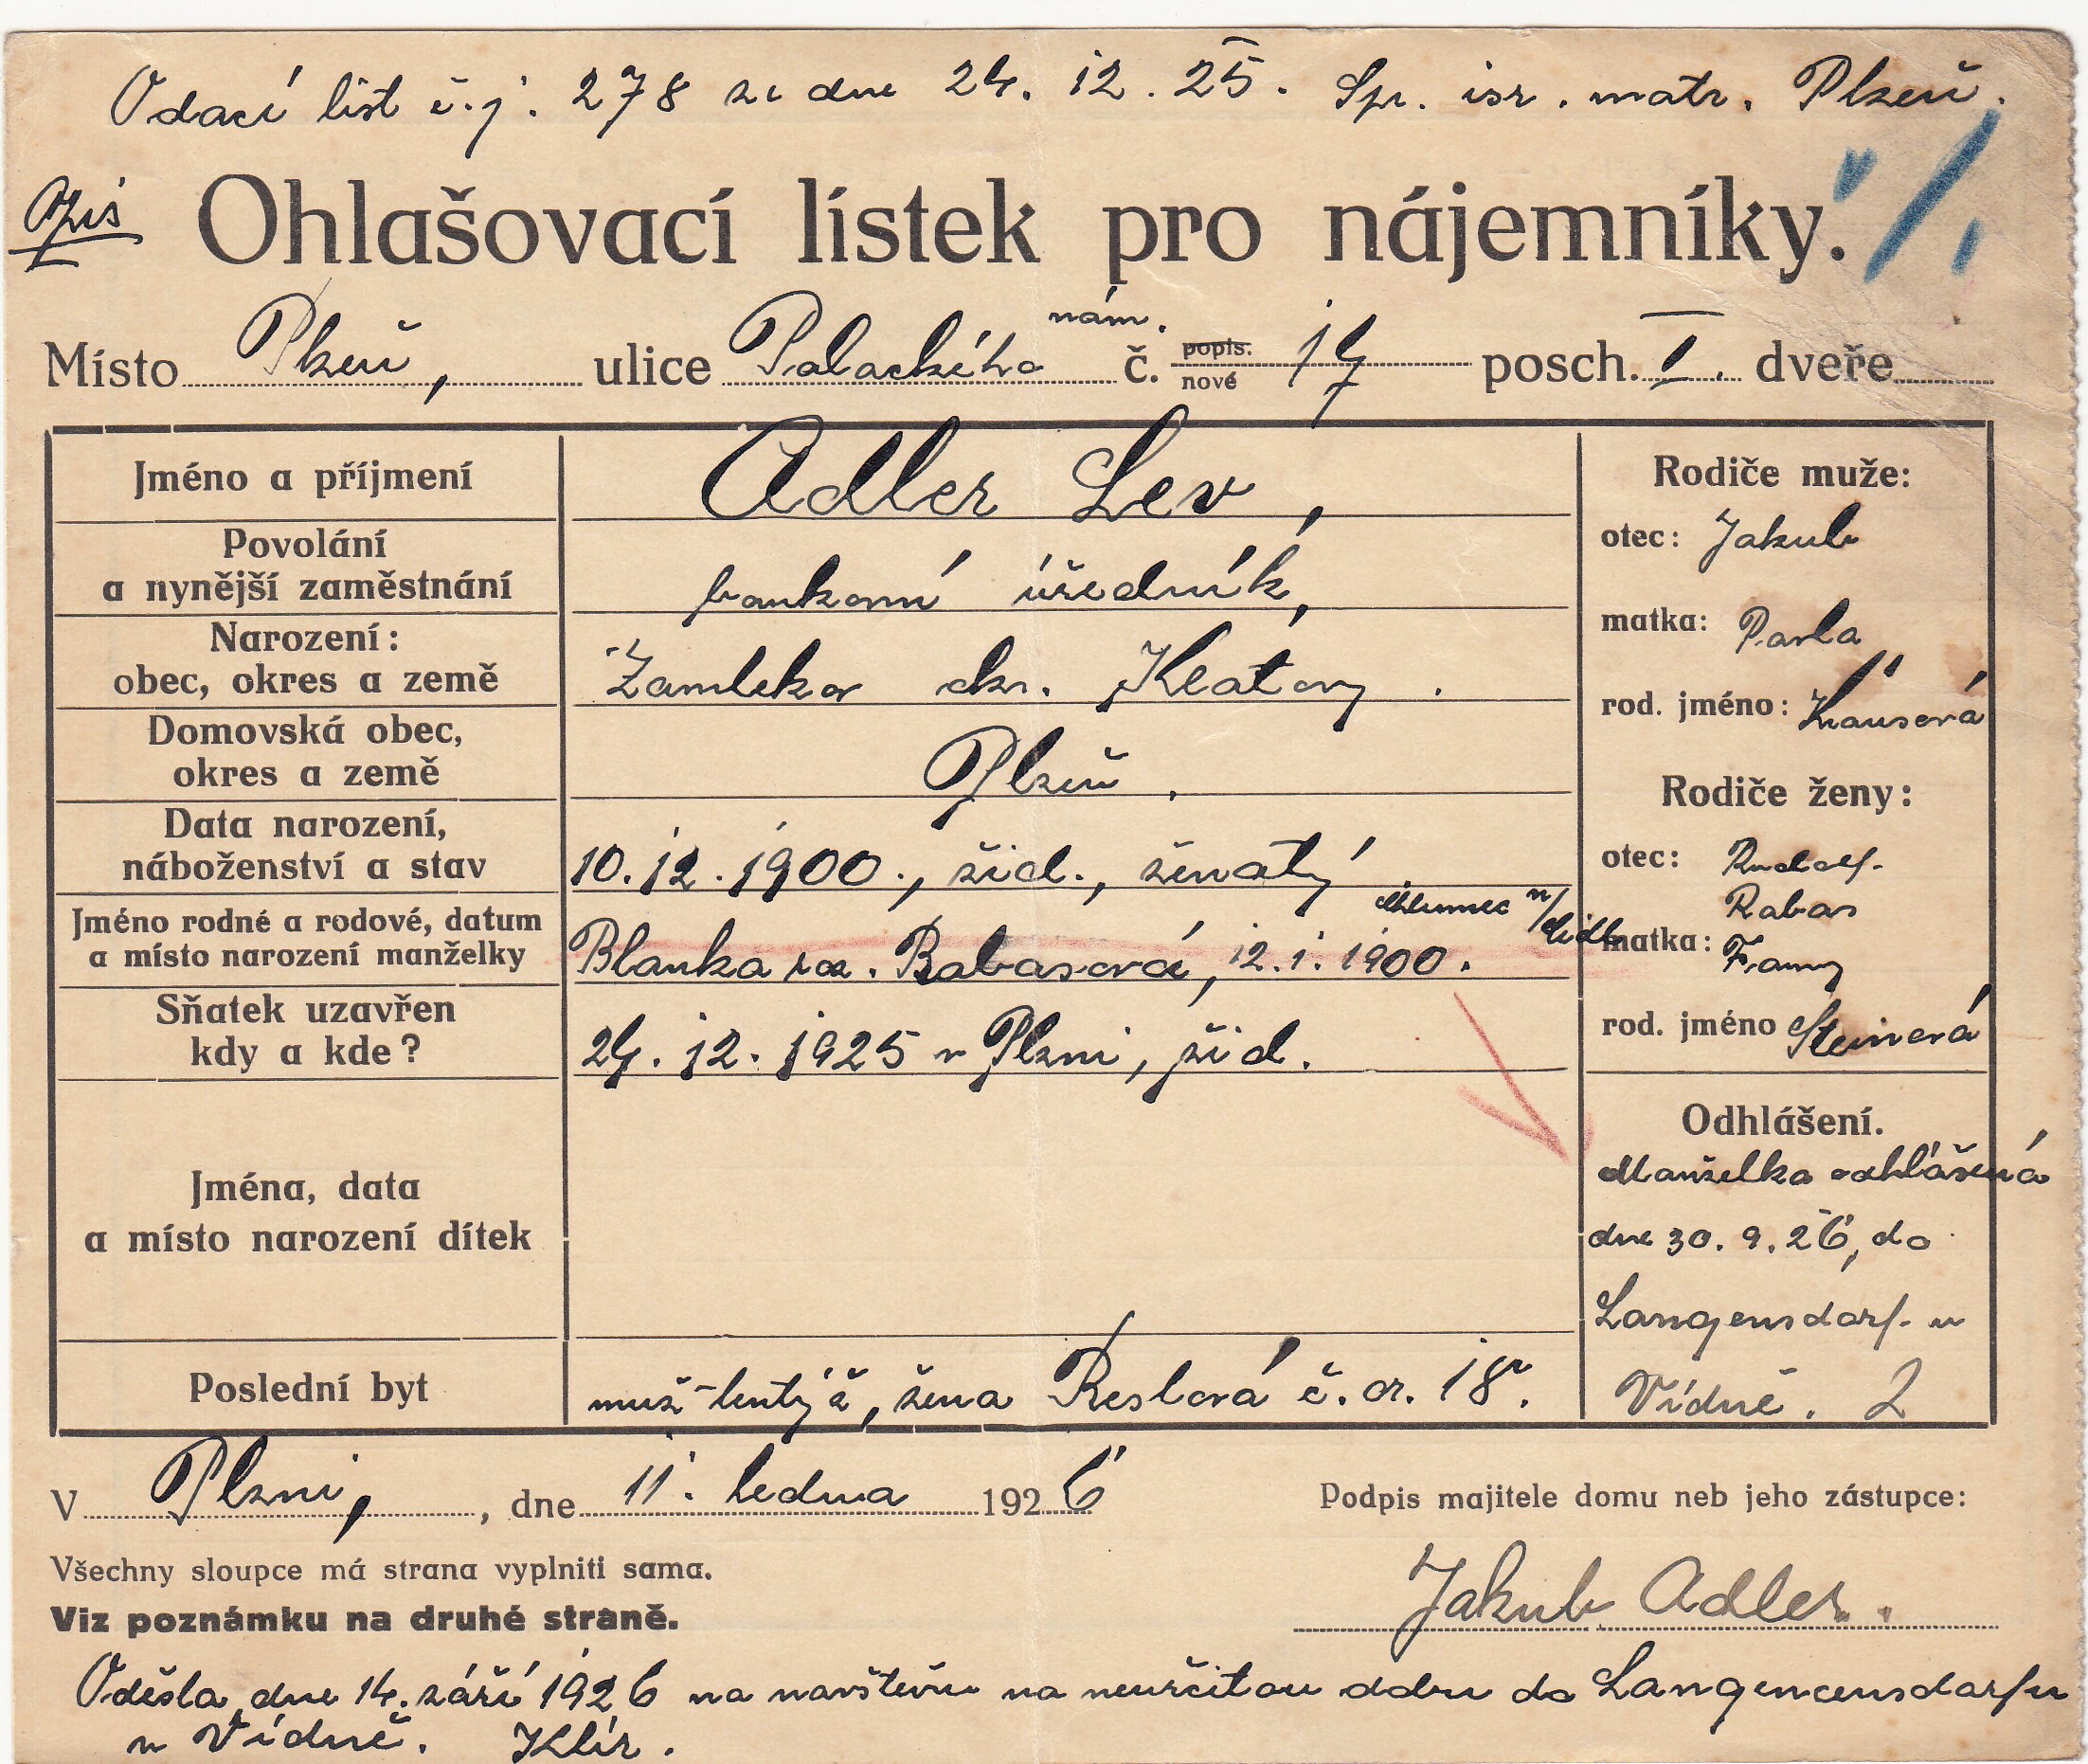 Odací list č.j. 278 ze dne 24. 12. 25. Spr. isr. matr. Plzeň.
Opis
Ohlašovací lístek pro nájemníky.
Místo Plzeň, ulice Palackého nám. č. popis. nové 17 posch. I. dveře
Jméno a příjmení
Adler Lev,
Povolání
a nynější zaměstnání
bankovní úředník,
Narození:
obec, okres a země
Žamleka okr. Klatovy.
Domovská obec,
okres a země
Plzeň.
Data narození,
náboženství a stav
10. 12. 1900., žid., ženatý
Jméno rodné a rodové, datum
a místo narození manželky
Chlumec n/Cidl.
Blanka roz. Rabasová, 12. 1. 1900.
Sňatek uzavřen
kdy a kde?
24. 12. 1925 v Plzni, žid.
Jména, data
a místo narození dítek
Poslední byt
muž - tentýž, žena Reslová č. or. 18.
Rodiče muže:
otec: Jakub
matka: Pavla
rod. jméno: Krausová
Rodiče ženy:
otec: Rudolf
Rabas
matka: Fanny
rod. jméno Steinová
Odhlášení.
Manželka odhlášená
dne 30. 9. 26, do
Langensdorf u
Vídně. 2
V Plzni, , dne 11. ledna 1926
Podpis majitele domu neb jeho zástupce:
Všechny sloupce má strana vyplniti sama.
Viz poznámku na druhé straně.
Jakub Adler.
Odešla dne 14. září 1926 na návštěvu na neurčitou dobu do Langencensdorfu
u Vídně. Klír.